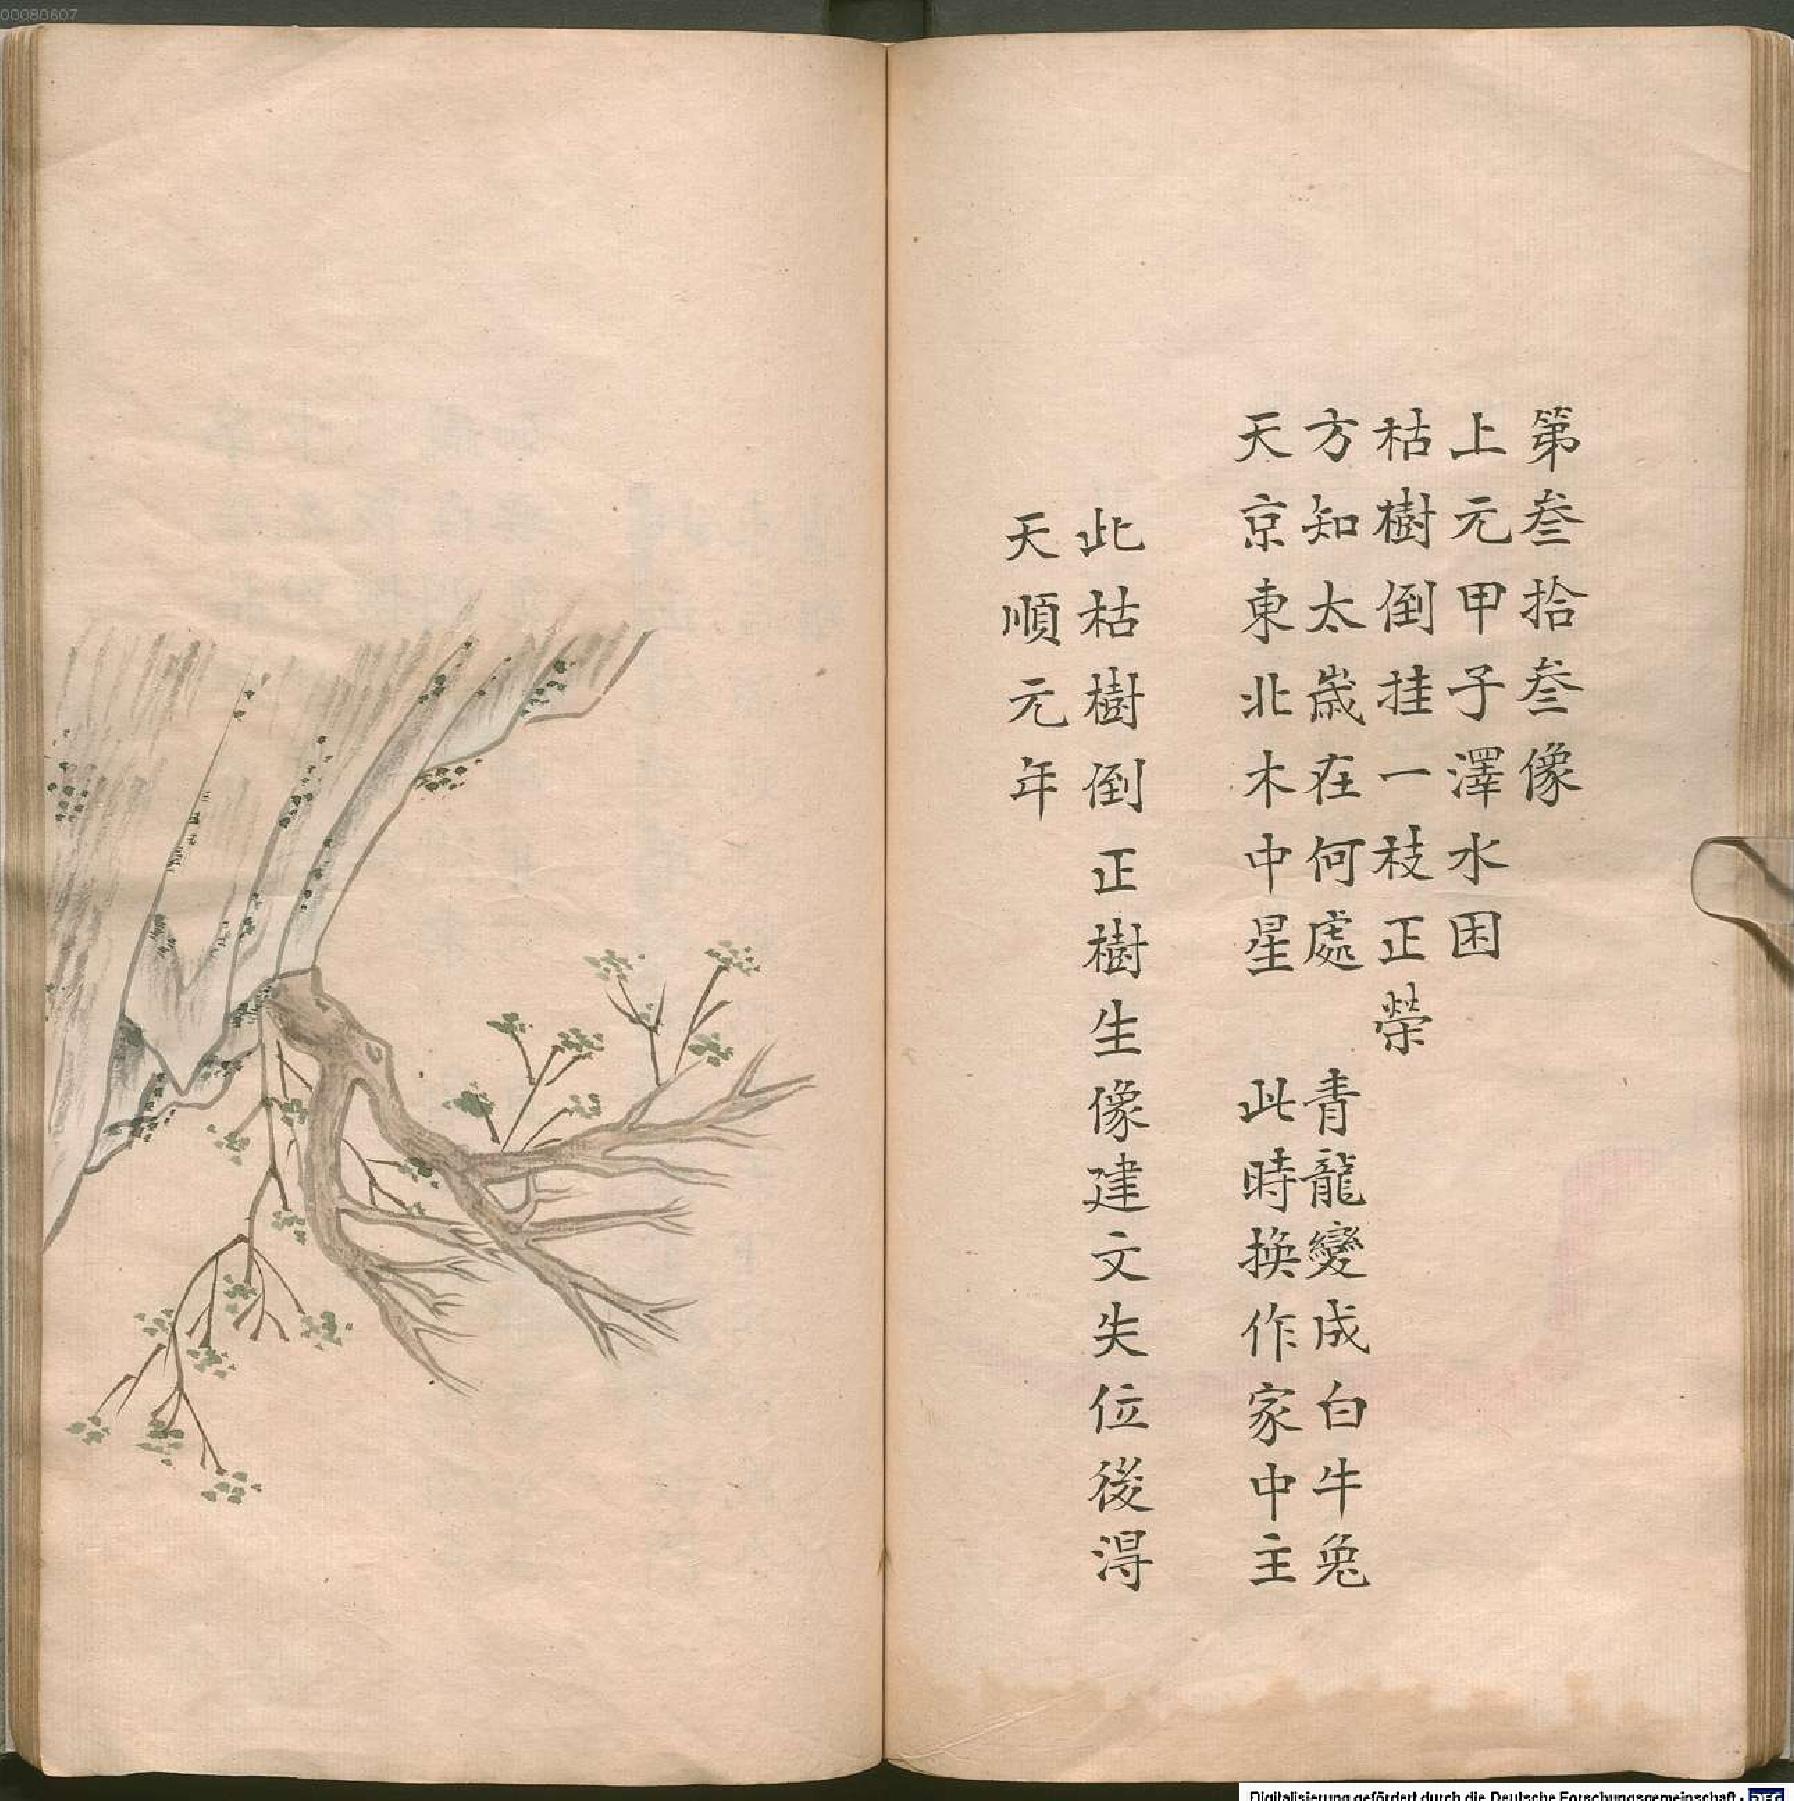 第叁拾叁像
上元甲子澤水困
枯樹倒挂一枝正榮
方知太歲在何處 青龍變成白牛兔
天京東北木中星 此時換作家中主
此枯樹倒正樹生像建文失位後得
天順元年
00080607
Digitalisierung gefördert durch die Deutsche Forschungsgemeinschaft - DFG